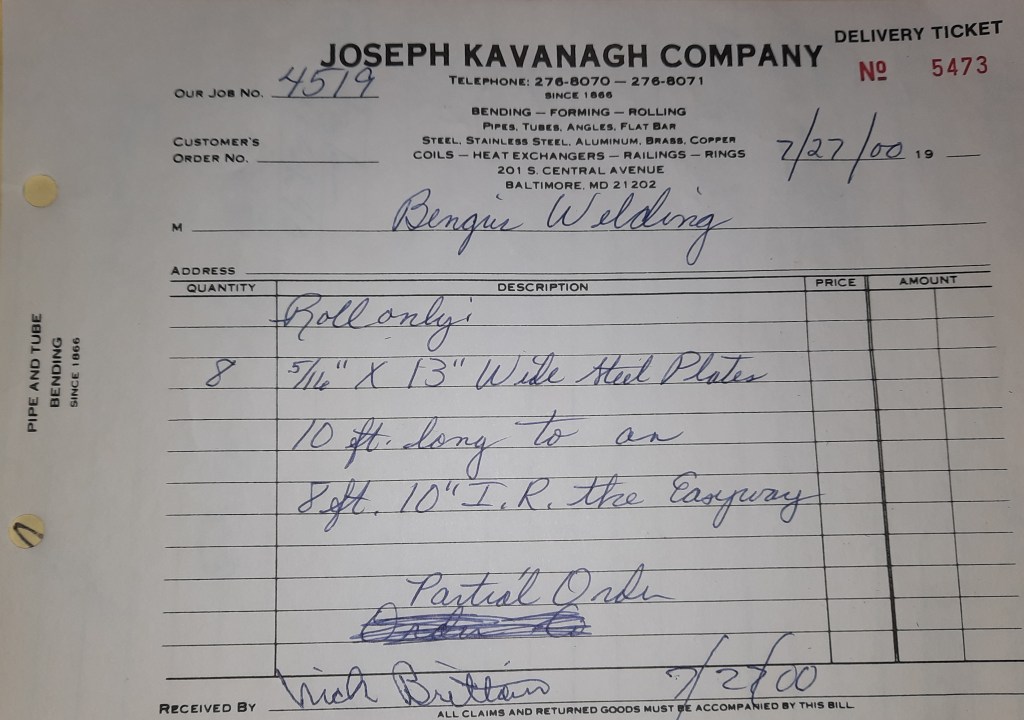 DELIVERY TICKET
JOSEPH KAVANAGH COMPANY
Nº 5473
OUR JOB NO. 4519
TELEPHONE: 276-8070 — 276-8071
SINCE 1866
BENDING — FORMING — ROLLING
PIPES, TUBES, ANGLES, FLAT BAR
CUSTOMER'S
ORDER NO.
STEEL, STAINLESS STEEL, ALUMINUM, BRASS, COPPER
COILS — HEAT EXCHANGERS — RAILINGS — RINGS
7/27/00 19
201 S. CENTRAL AVENUE
BALTIMORE, MD 21202
M Bengis Welding
ADDRESS
QUANTITY DESCRIPTION PRICE AMOUNT
Roll only:
8 5/16" X 13" Wide Steel Plates
10 ft. long to an
8 ft. 10" I.R. the Easyway
Partial Order
RECEIVED BY Nick Brittain 7/27/00
ALL CLAIMS AND RETURNED GOODS MUST BE ACCOMPANIED BY THIS BILL
PIPE AND TUBE
BENDING
SINCE 1866